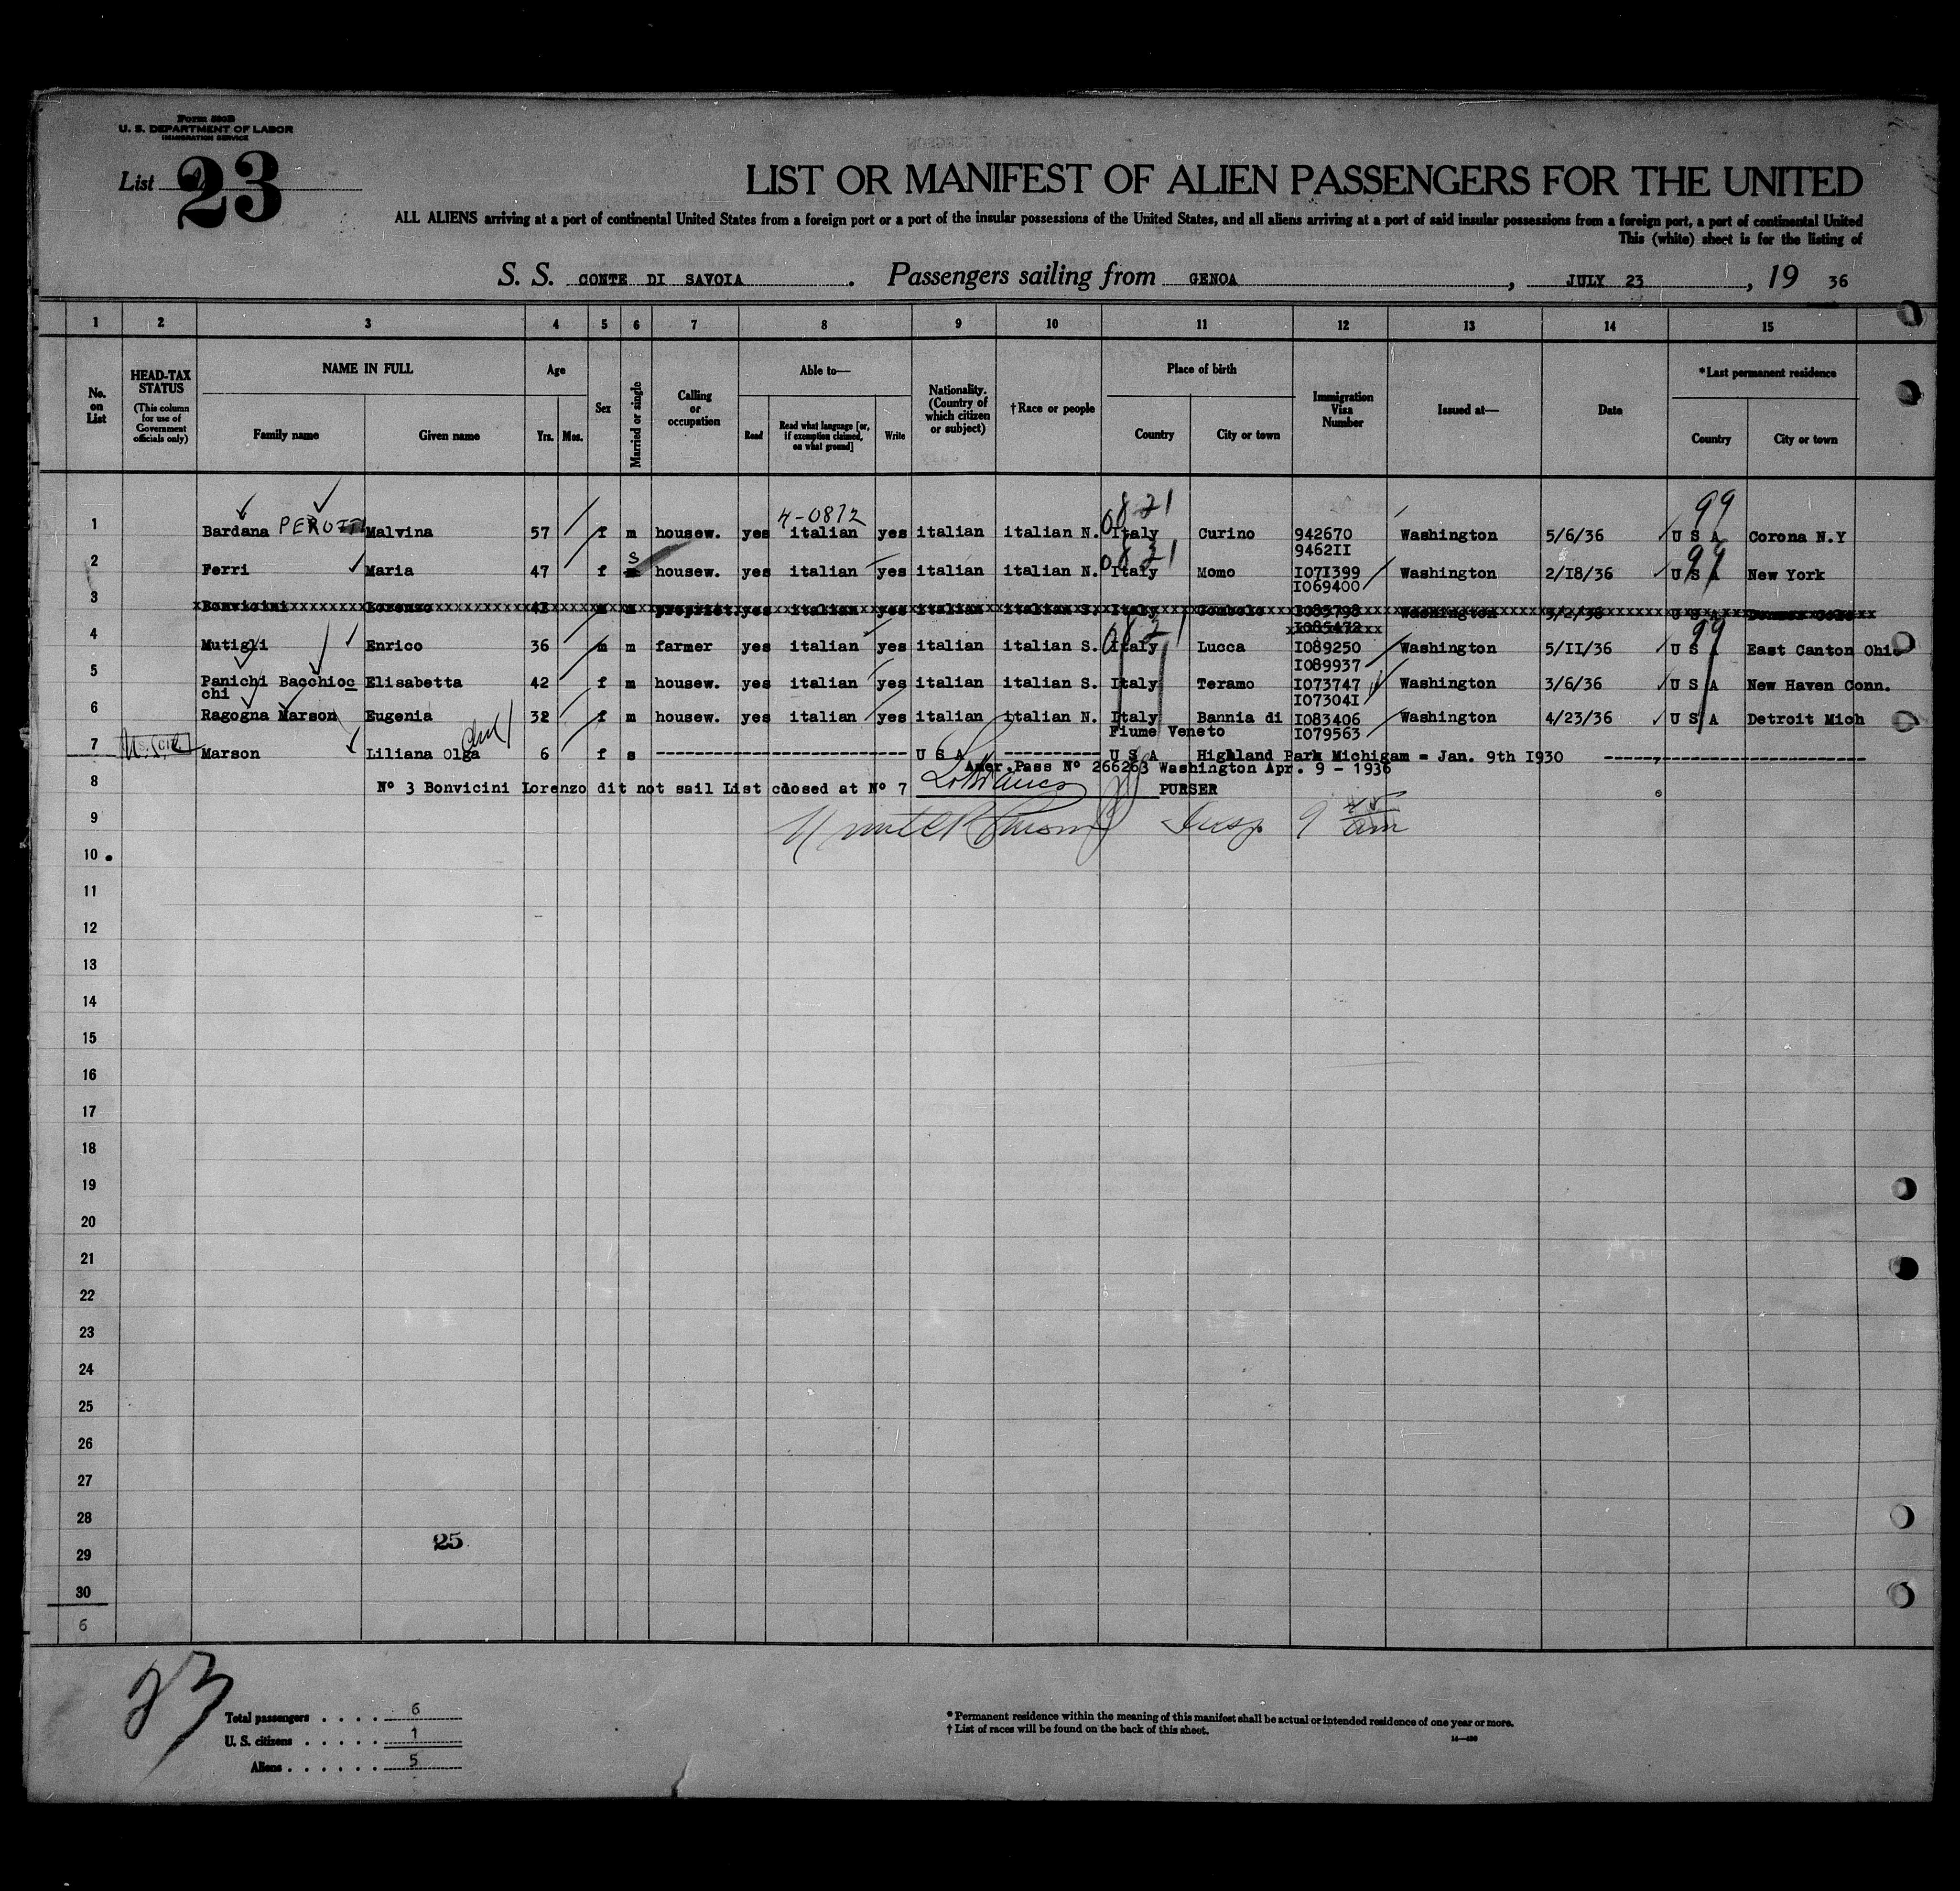 Form 500B
U. S. DEPARTMENT OF LABOR
IMMIGRATION SERVICE
List 23
LIST OR MANIFEST OF ALIEN PASSENGERS FOR THE UNITED
ALL ALIENS arriving at a port of continental United States from a foreign port or a port of the insular possessions of the United States, and all aliens arriving at a port of said insular possessions from a foreign port, a port of continental United
This (white) sheet is for the listing of
S. S. CONTE DI SAVOIA . Passengers sailing from GENOA , JULY 23 , 19 36
1 2 3 4 5 6 7 8 9 10 11 12 13 14 15
No. on List
HEAD-TAX STATUS (This column for use of Government officials only)
NAME IN FULL Family name Given name
Age Yrs. Mos.
Sex
Married or single
Calling or occupation
Able to— Read Read what language [or, if exemption claimed, on what ground] Write
Nationality. (Country of which citizen or subject)
†Race or people
Place of birth Country City or town
Immigration Visa Number
Issued at—
Date
*Last permanent residence Country City or town
4-0872 0821 99
1 Bardana PEROTTI Malvina 57 f m housew. yes italian yes italian italian N. Italy Curino 942670 Washington 5/6/36 U S A Corona N.Y
9462II
S 0821 99
2 Ferri Maria 47 f m housew. yes italian yes italian italian N. Italy Momo I071399 Washington 2/18/36 U S A New York
I069400
3 Bonvicini Lorenzo 43 m m propriet. yes italian yes italian italian S. Italy Gombolo I085798 Washington 5/2/36 U S A
I085472
0821 99
4 Mutigli Enrico 36 m m farmer yes italian yes italian italian S. Italy Lucca I089250 Washington 5/II/36 U S A East Canton Ohio
I089937
5 Panichi Bacchioc Elisabetta 42 f m housew. yes italian yes italian italian S. Italy Teramo I073747 Washington 3/6/36 U S A New Haven Conn.
chi I07304I
6 Ragogna Marson Eugenia 32 f m housew. yes italian yes italian italian N. Italy Bannia di I083406 Washington 4/23/36 U S A Detroit Mich
Fiume Veneto I079563
7 U.S. Cit Marson Liliana Olga 6 f s U S A U S A Highland Park Michigam = Jan. 9th I930
Amer.Pass Nº 266263 Washington Apr. 9 - 1936
8 Nº 3 Bonvicini Lorenzo dit not sail List closed at Nº 7 PURSER
9 Insp. 9 45 am
10
11
12
13
14
15
16
17
18
19
20
21
22
23
24
25
26
27
28
25
29
30
6
23
Total passengers . . . . 6
U. S. citizens . . . . . 1
Aliens . . . . . . 5
* Permanent residence within the meaning of this manifest shall be actual or intended residence of one year or more.
† List of races will be found on the back of this sheet.